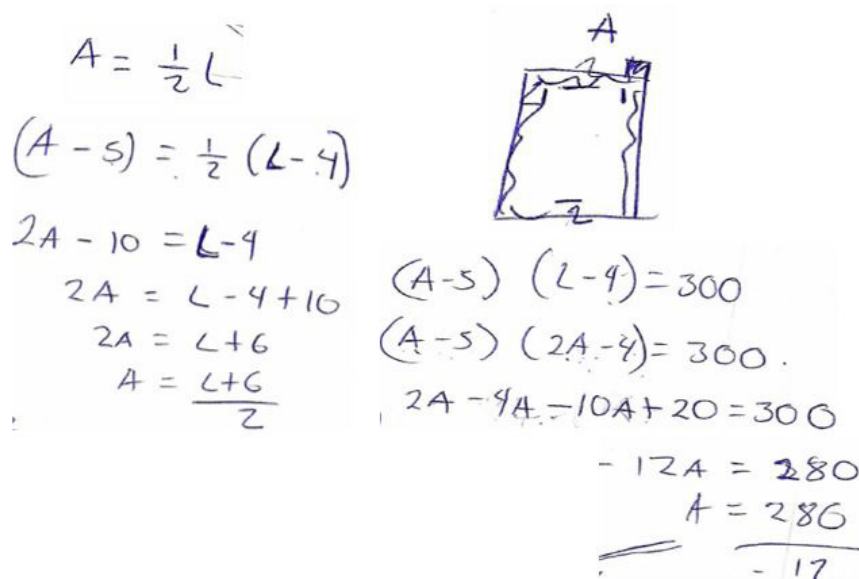 A = 1/2 L
(A - 5) = 1/2 (L - 4)
2A - 10 = L - 4
2A = L - 4 + 10
2A = L + 6
A = L + 6
2
A
2
1
1
2
(A - 5) (L - 4) = 300
(A - 5) (2A - 4) = 300.
2A - 4A - 10A + 20 = 300
- 12A = 280
A = 280
- 12